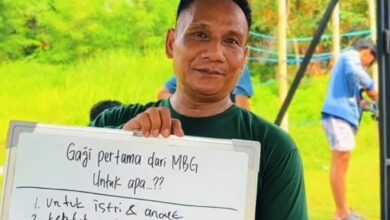 Gaji pertama dari MBG
Untuk apa...??
1. Untuk istri & anak
2.